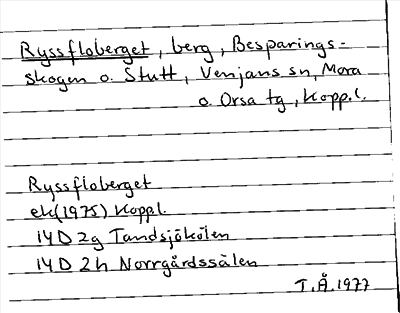 Ryssfloberget, berg, Besparings-
skogen o. Stutt, Venjans sn, Mora
o. Orsa tg, Kopp.l.
Ryssfloberget
ek(1975) Koppl.
14D 2g Tandsjökölen
14D 2h Norrgårdssälen
T.Å. 1977